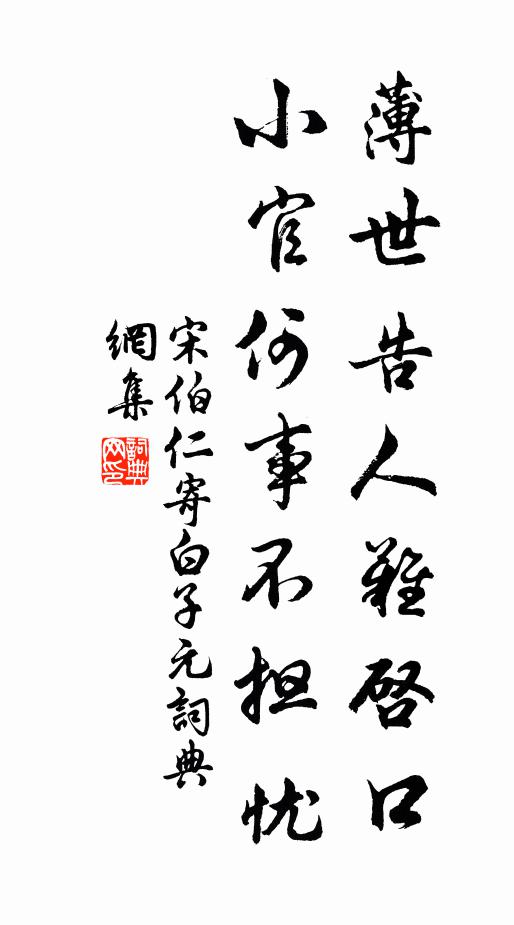 薄世告人難啓口
小官何事不担忧
宋伯仁寄白子元詞典
網集
詞典網印